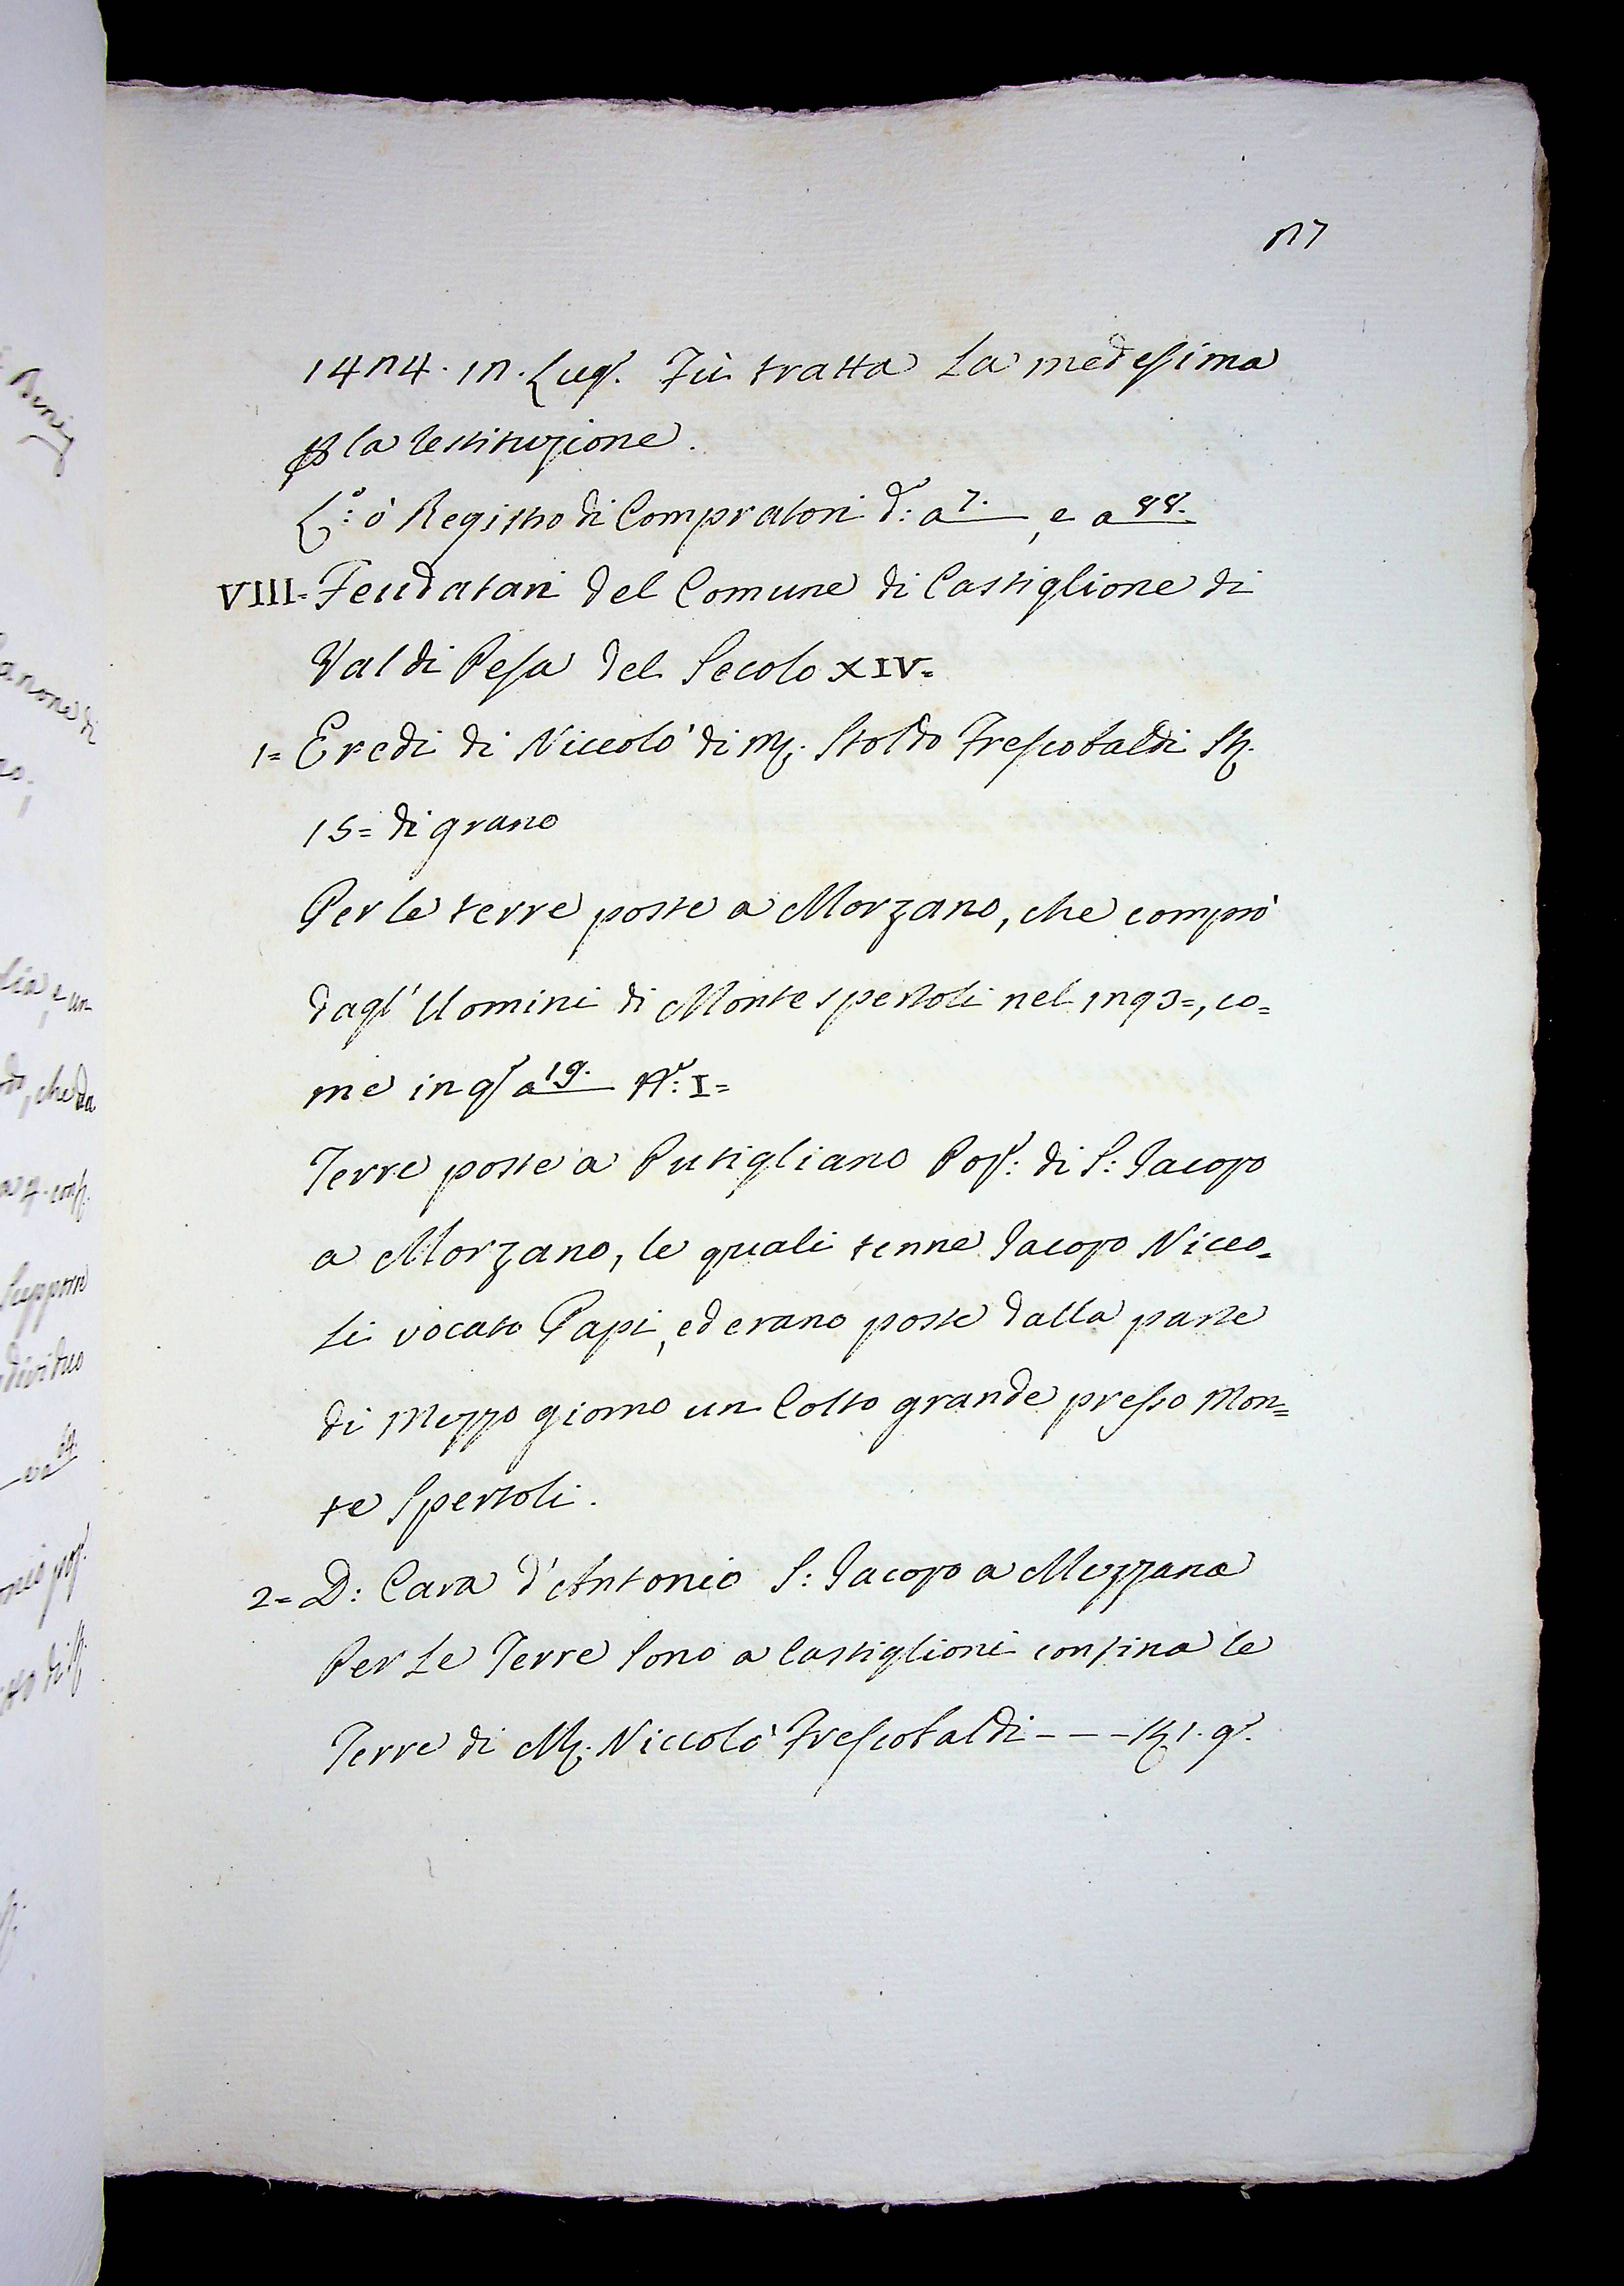 1424. 12. Lug. Fù tratta La medesima
p la restituzione.
L.º: ò Registro di Compratori d.º: a 7. , e a 88.
VIII= Feudatari del Comune di Castiglione di
Val di Pesa del Secolo XIV=
1= Eredi di Niccolo' di M. Stoldo Frescobaldi St.
15= di grano
Per le terre poste a Morzano, che comprò
dagl' Uomini di Monte spertoli nel 1293=, co=
me in q.º a 19. N.º: I=
Terre poste a Putigliano Pop.: di S: Jacopo
a Morzano, le quali tenne Jacopo Nicco=
li vocato Papi, ed erano poste dalla parte
di Mezzo giorno un Colto grande presso Mon=
te Spertoli.
2= D: Cara d'Antonio S: Jacopo a Mozzana
Per Le Terre Sono a Castiglioni confina le
Terre di M. Niccolò Frescobaldi - - - St. 1. g.